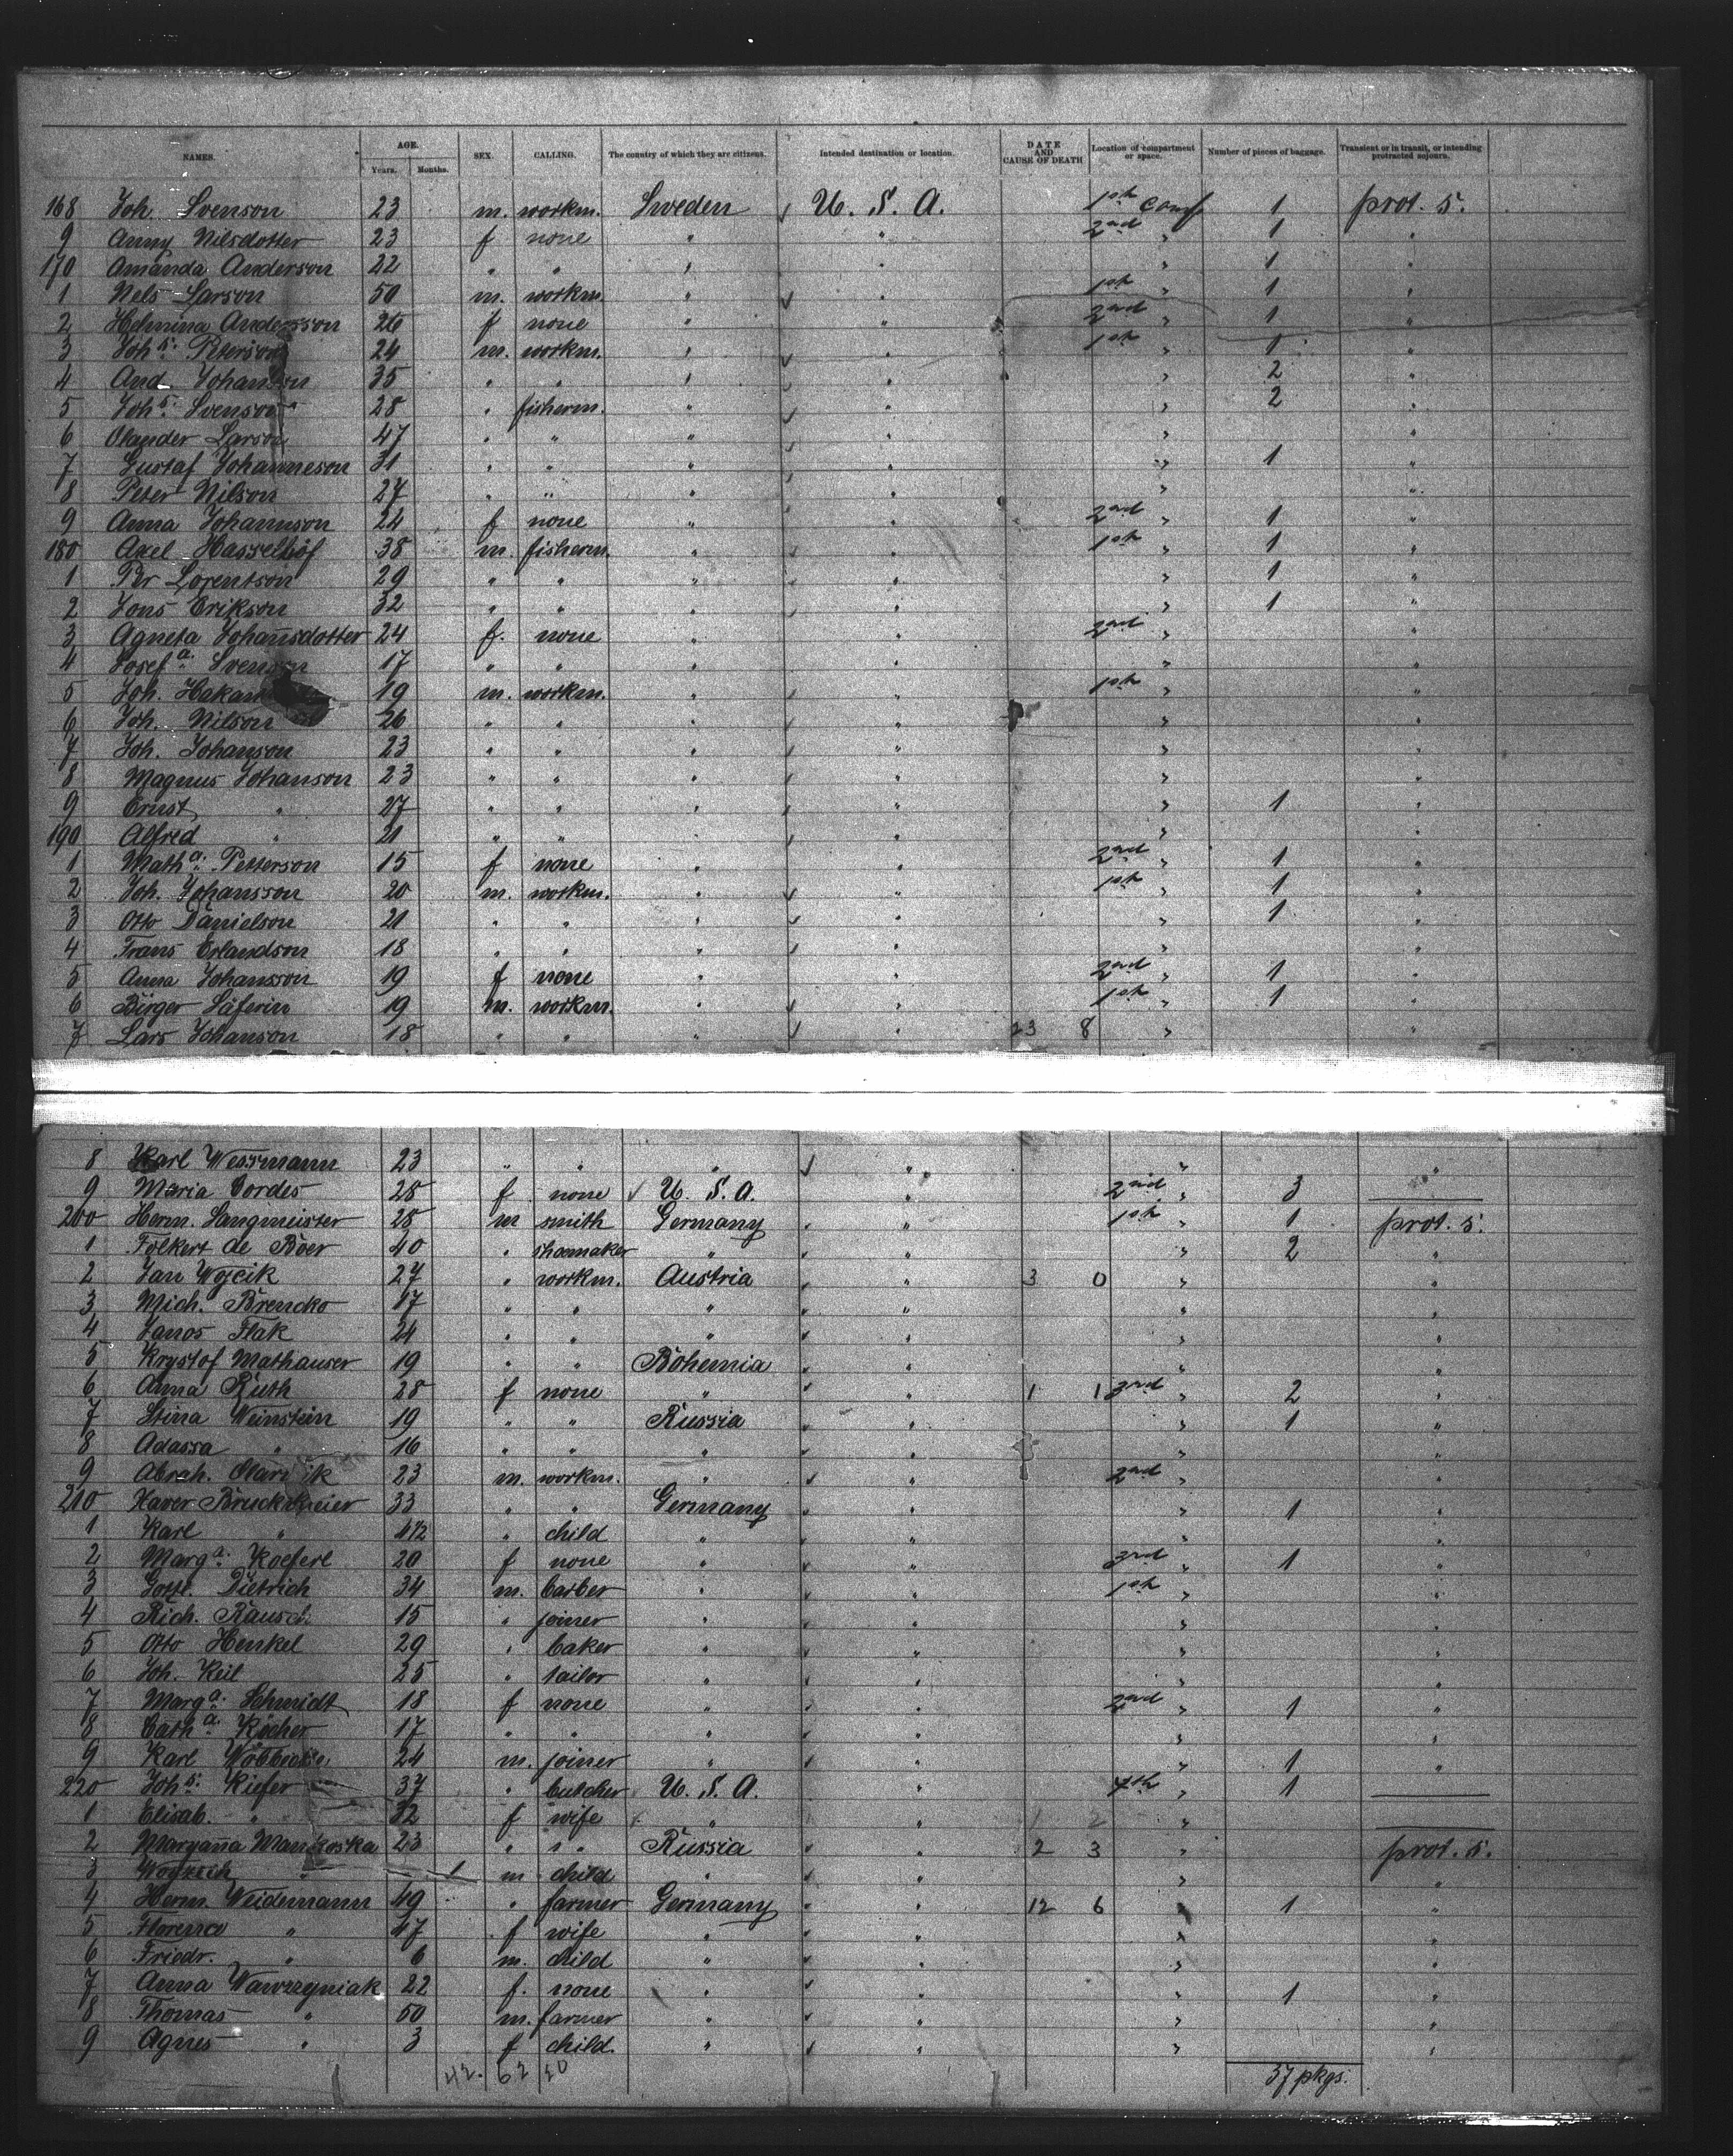 NAMES. AGE. Years. Months. SEX. CALLING. The country of which they are citizens. Intended destination or location. DATE AND CAUSE OF DEATH Location of compartment or space. Number of pieces of baggage. Transient or in transit, or intending protracted sojourn.
168 Joh. Svenson 23 m. workm. Sweden U. S. A. 1st Comp 1 prot. s.
9 Anny Nilsdotter 23 f none " " 2nd " 1 "
170 Amanda Anderson 22 " " " " " 1 "
1 Nels Larson 50 m. workm. " " 1st " 1 "
2 Helmina Andersson 26 f none " " 2nd " 1 "
3 Johs. Peterson 24 m. workm. " " 1st " 1 "
4 And. Johanson 35 " " " " " 2 "
5 Johs. Svenson 28 " fisherm. " " " 2 "
6 Olander Larson 47 " " " " " "
7 Gustaf Johanneson 31 " " " " " 1 "
8 Peter Nilson 27 " " " " " "
9 Anna Johannson 24 f none " " 2nd " 1 "
180 Axel Hasselhof 38 m. fisherm. " " 1st " 1 "
1 Per Lorentson 29 " " " " " 1 "
2 Jons Erikson 32 " " " " " 1 "
3 Agneta Johansdotter 24 f. none " " 2nd " "
4 Josefa. Svenson 17 " " " " " "
5 Joh. 19 m. workm. " " 1st " "
6 Joh. Nilson 26 " " " " " "
7 Joh. Johanson 23 " " " " " "
8 Magnus Johanson 23 " " " " " "
9 Ernst " 27 " " " " " 1 "
190 Alfred " 21 " " " " " "
1 Matha. Petterson 15 f none " " 2nd " 1 "
2 Joh. Johansson 20 m. workm. " " 1st " 1 "
3 Otto Danielson 21 " " " " " 1 "
4 Frans Erlandson 18 " " " " " "
5 Anna Johansson 19 f none " " 2nd " 1 "
6 Birger Säferin 19 m. workm. " " 1st " 1 "
7 Lars Johanson 18 " " " " 23 8 " "
8 Karl Wessmann 23 " " " " " "
9 Maria Cordes 28 f none U. S. A. " 2nd " 3
200 Herm. Langmeister 28 m smith Germany " 1st " 1 prot. s.
1 Folkert de Boer 40 " shoemaker " " " 2 "
2 Jan Wojcik 27 " workm. Austria " 3 0 " "
3 Mich. Brencko 17 " " " " " "
4 Janos Flak 24 " " " " " "
5 Krystof Mathauser 19 " " Bohemia " " "
6 Anna Ruth 28 f none " " 1 1 3rd " 2 "
7 Stina Weinstein 19 " " Russia " " 1 "
8 Adassa " 16 " " " " " "
9 Abrah. 23 m. workm. " " 2nd " "
210 Xaver Bruckmeier 33 " " Germany " " 1 "
1 Karl " 4 1/2 " child " " "
2 Marga. Koeferl 20 f none " " 3rd " 1 "
3 Gottl. Dietrich 34 m. barber " " 1st " "
4 Rich. Rausch 15 " joiner " " " "
5 Otto Henkel 29 " baker " " " "
6 Joh. Keil 25 " tailor " " " "
7 Marga. Schmidt 18 f none " " 2nd " 1 "
8 Catha. Köcher 17 " " " " " "
9 Karl 24 m. joiner " " " 1 "
220 Johs. Kiefer 37 " butcher U. S. A. " 4th " 1
1 Elisab. " 32 f wife " " 1 2 "
2 Maryanna Mankoska 23 " " Russia " 2 3 " prot. s.
3 Woyzech " 1 m child " " " "
4 Herm. Weidemann 49 " farmer Germany " 12 6 " 1 "
5 Florence " 47 f wife " " " "
6 Friedr. " 6 m. child " " " "
7 Anna Wawrzyniak 22 f. none " " " 1 "
8 Thomas " 50 m. farmer " " " "
9 Agnes " 3 f child. " " " "
42. 62 20 37 pkgs.